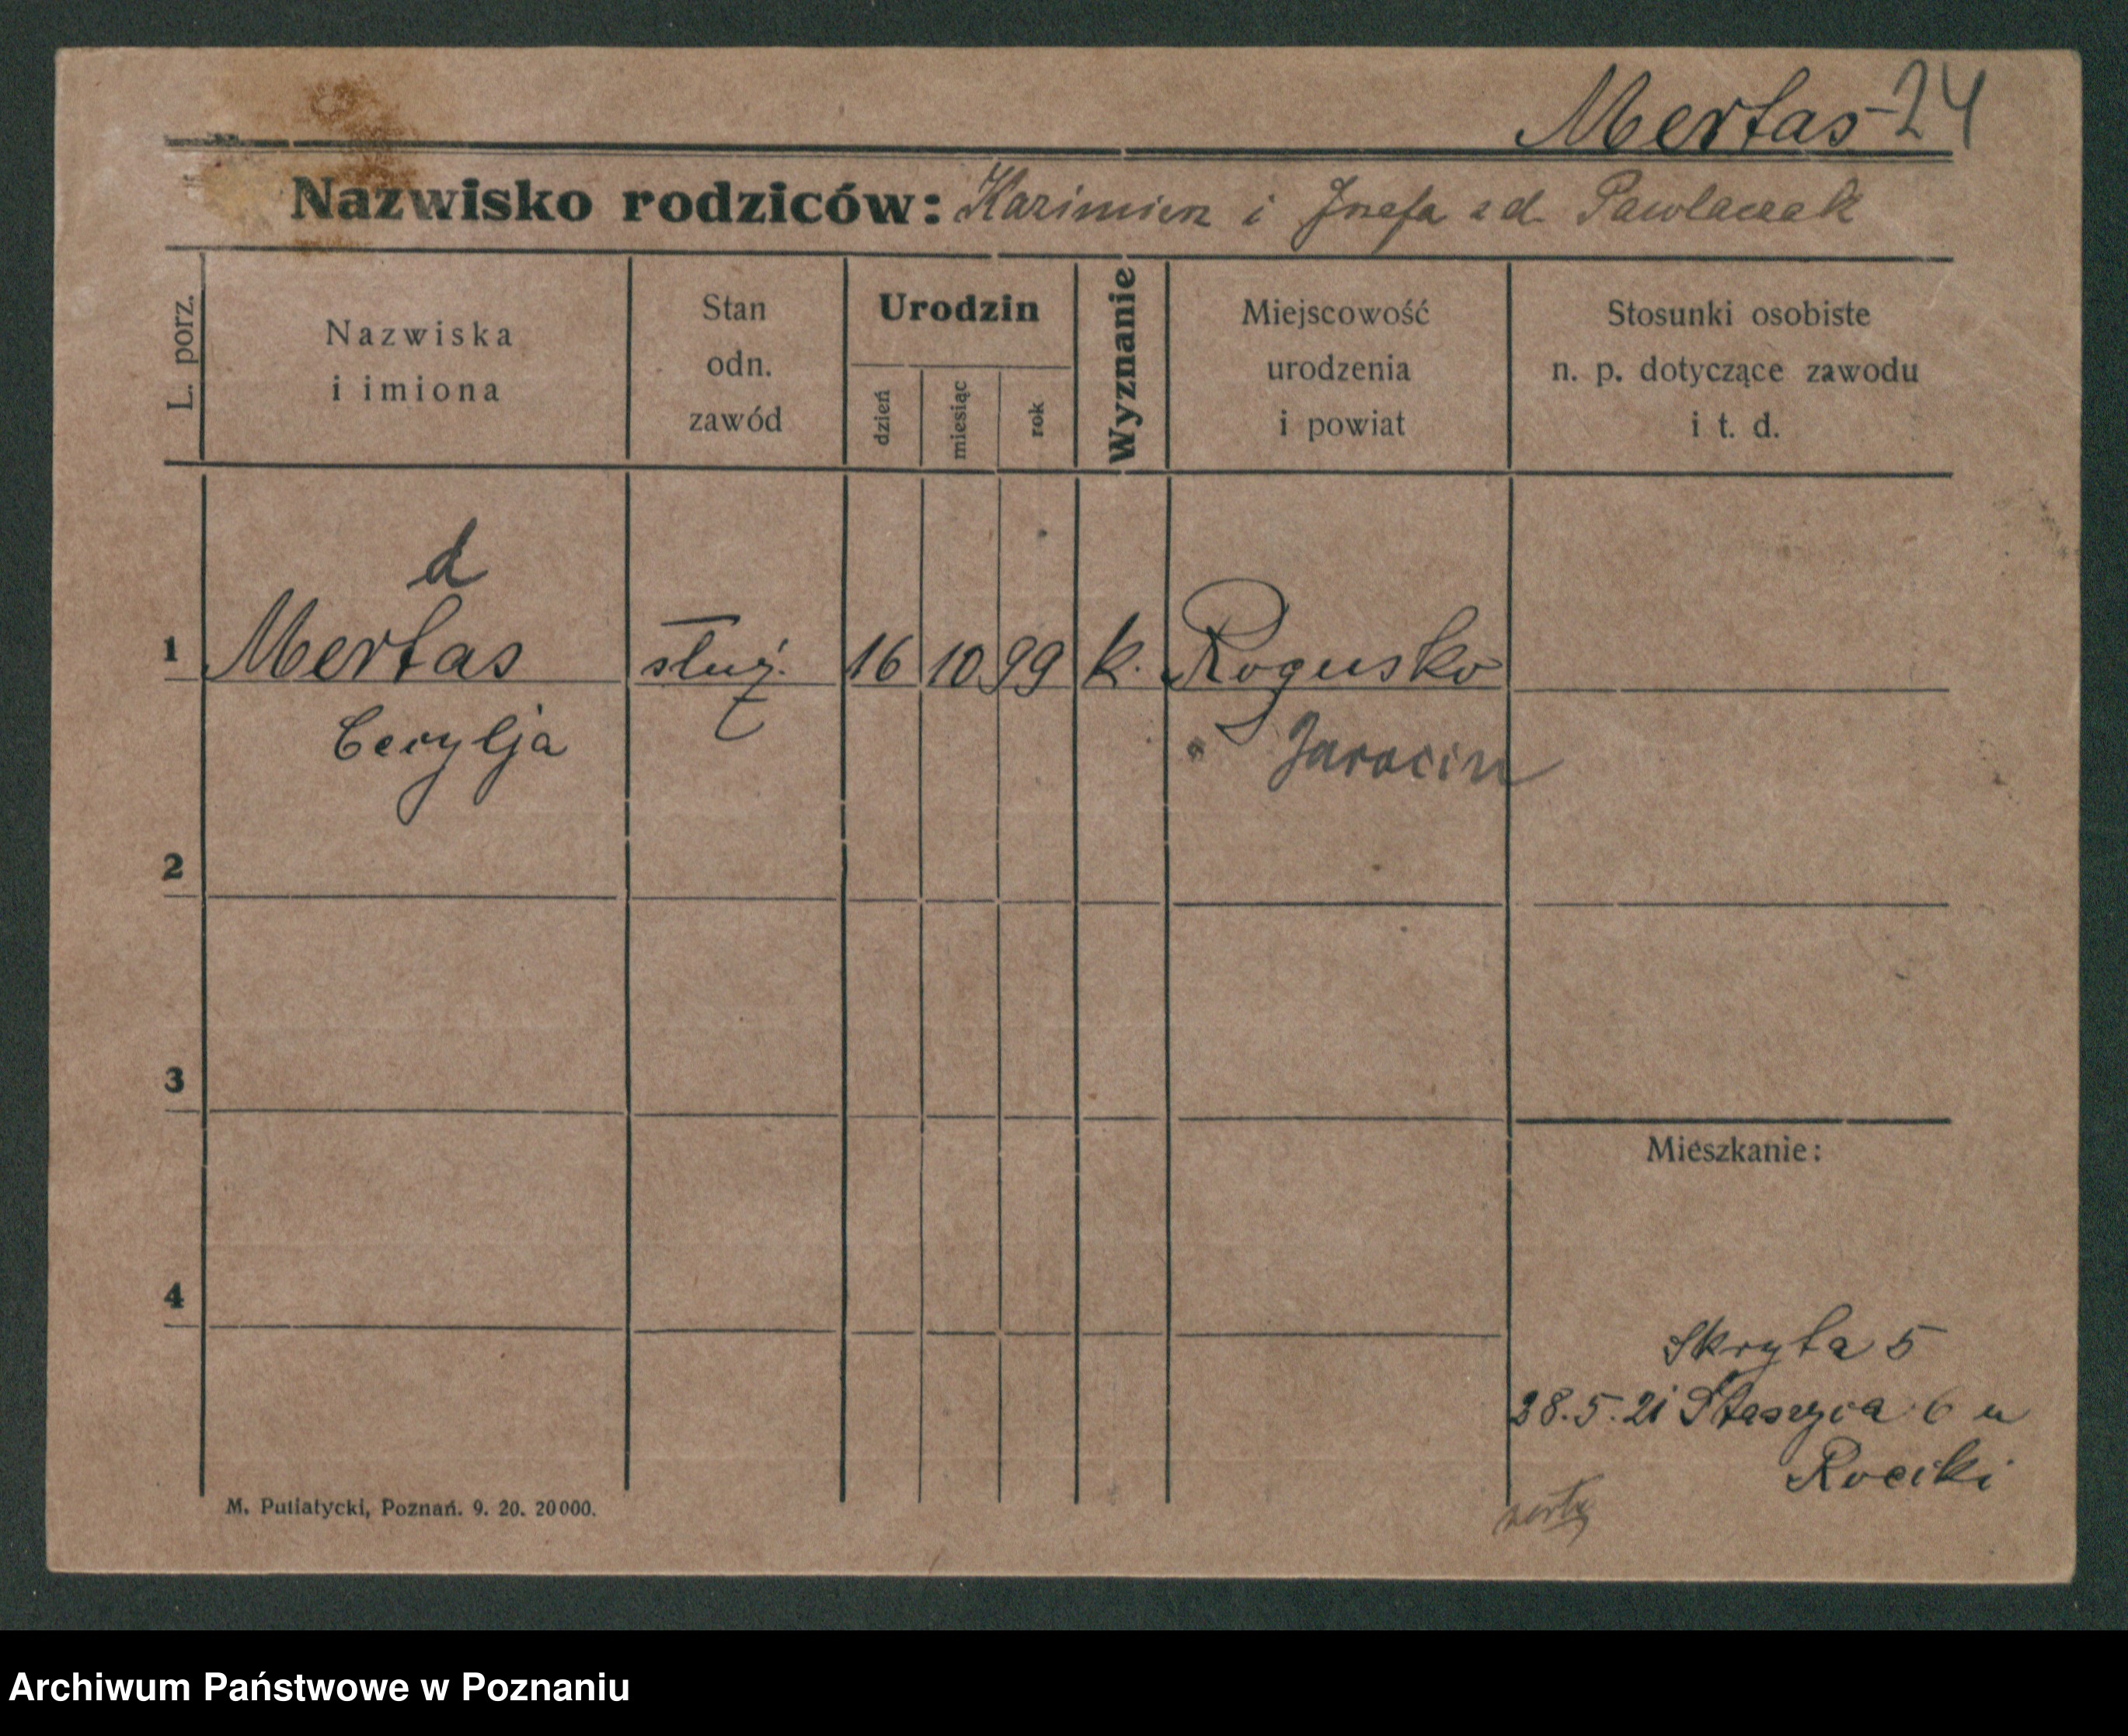 Mertas-24
Nazwisko rodziców: Kazimierz i Józefa z d. Pawlaczak
L. porz.
Nazwiska
i imiona
Stan
odn.
zawód
Urodzin
dzień
miesiąc
rok
Wyznanie
Miejscowość
urodzenia
i powiat
Stosunki osobiste
n. p. dotyczące zawodu
i t. d.
d
1 Mertas służ. 16 10 99 k. Rogusko
Cecylja Jarocin
2
3
Mieszkanie:
4
Skryta 5
28.5.21 Staszyca 6 u
M. Putiatycki, Poznań. 9. 20. 20000.
Archiwum Państwowe w Poznaniu